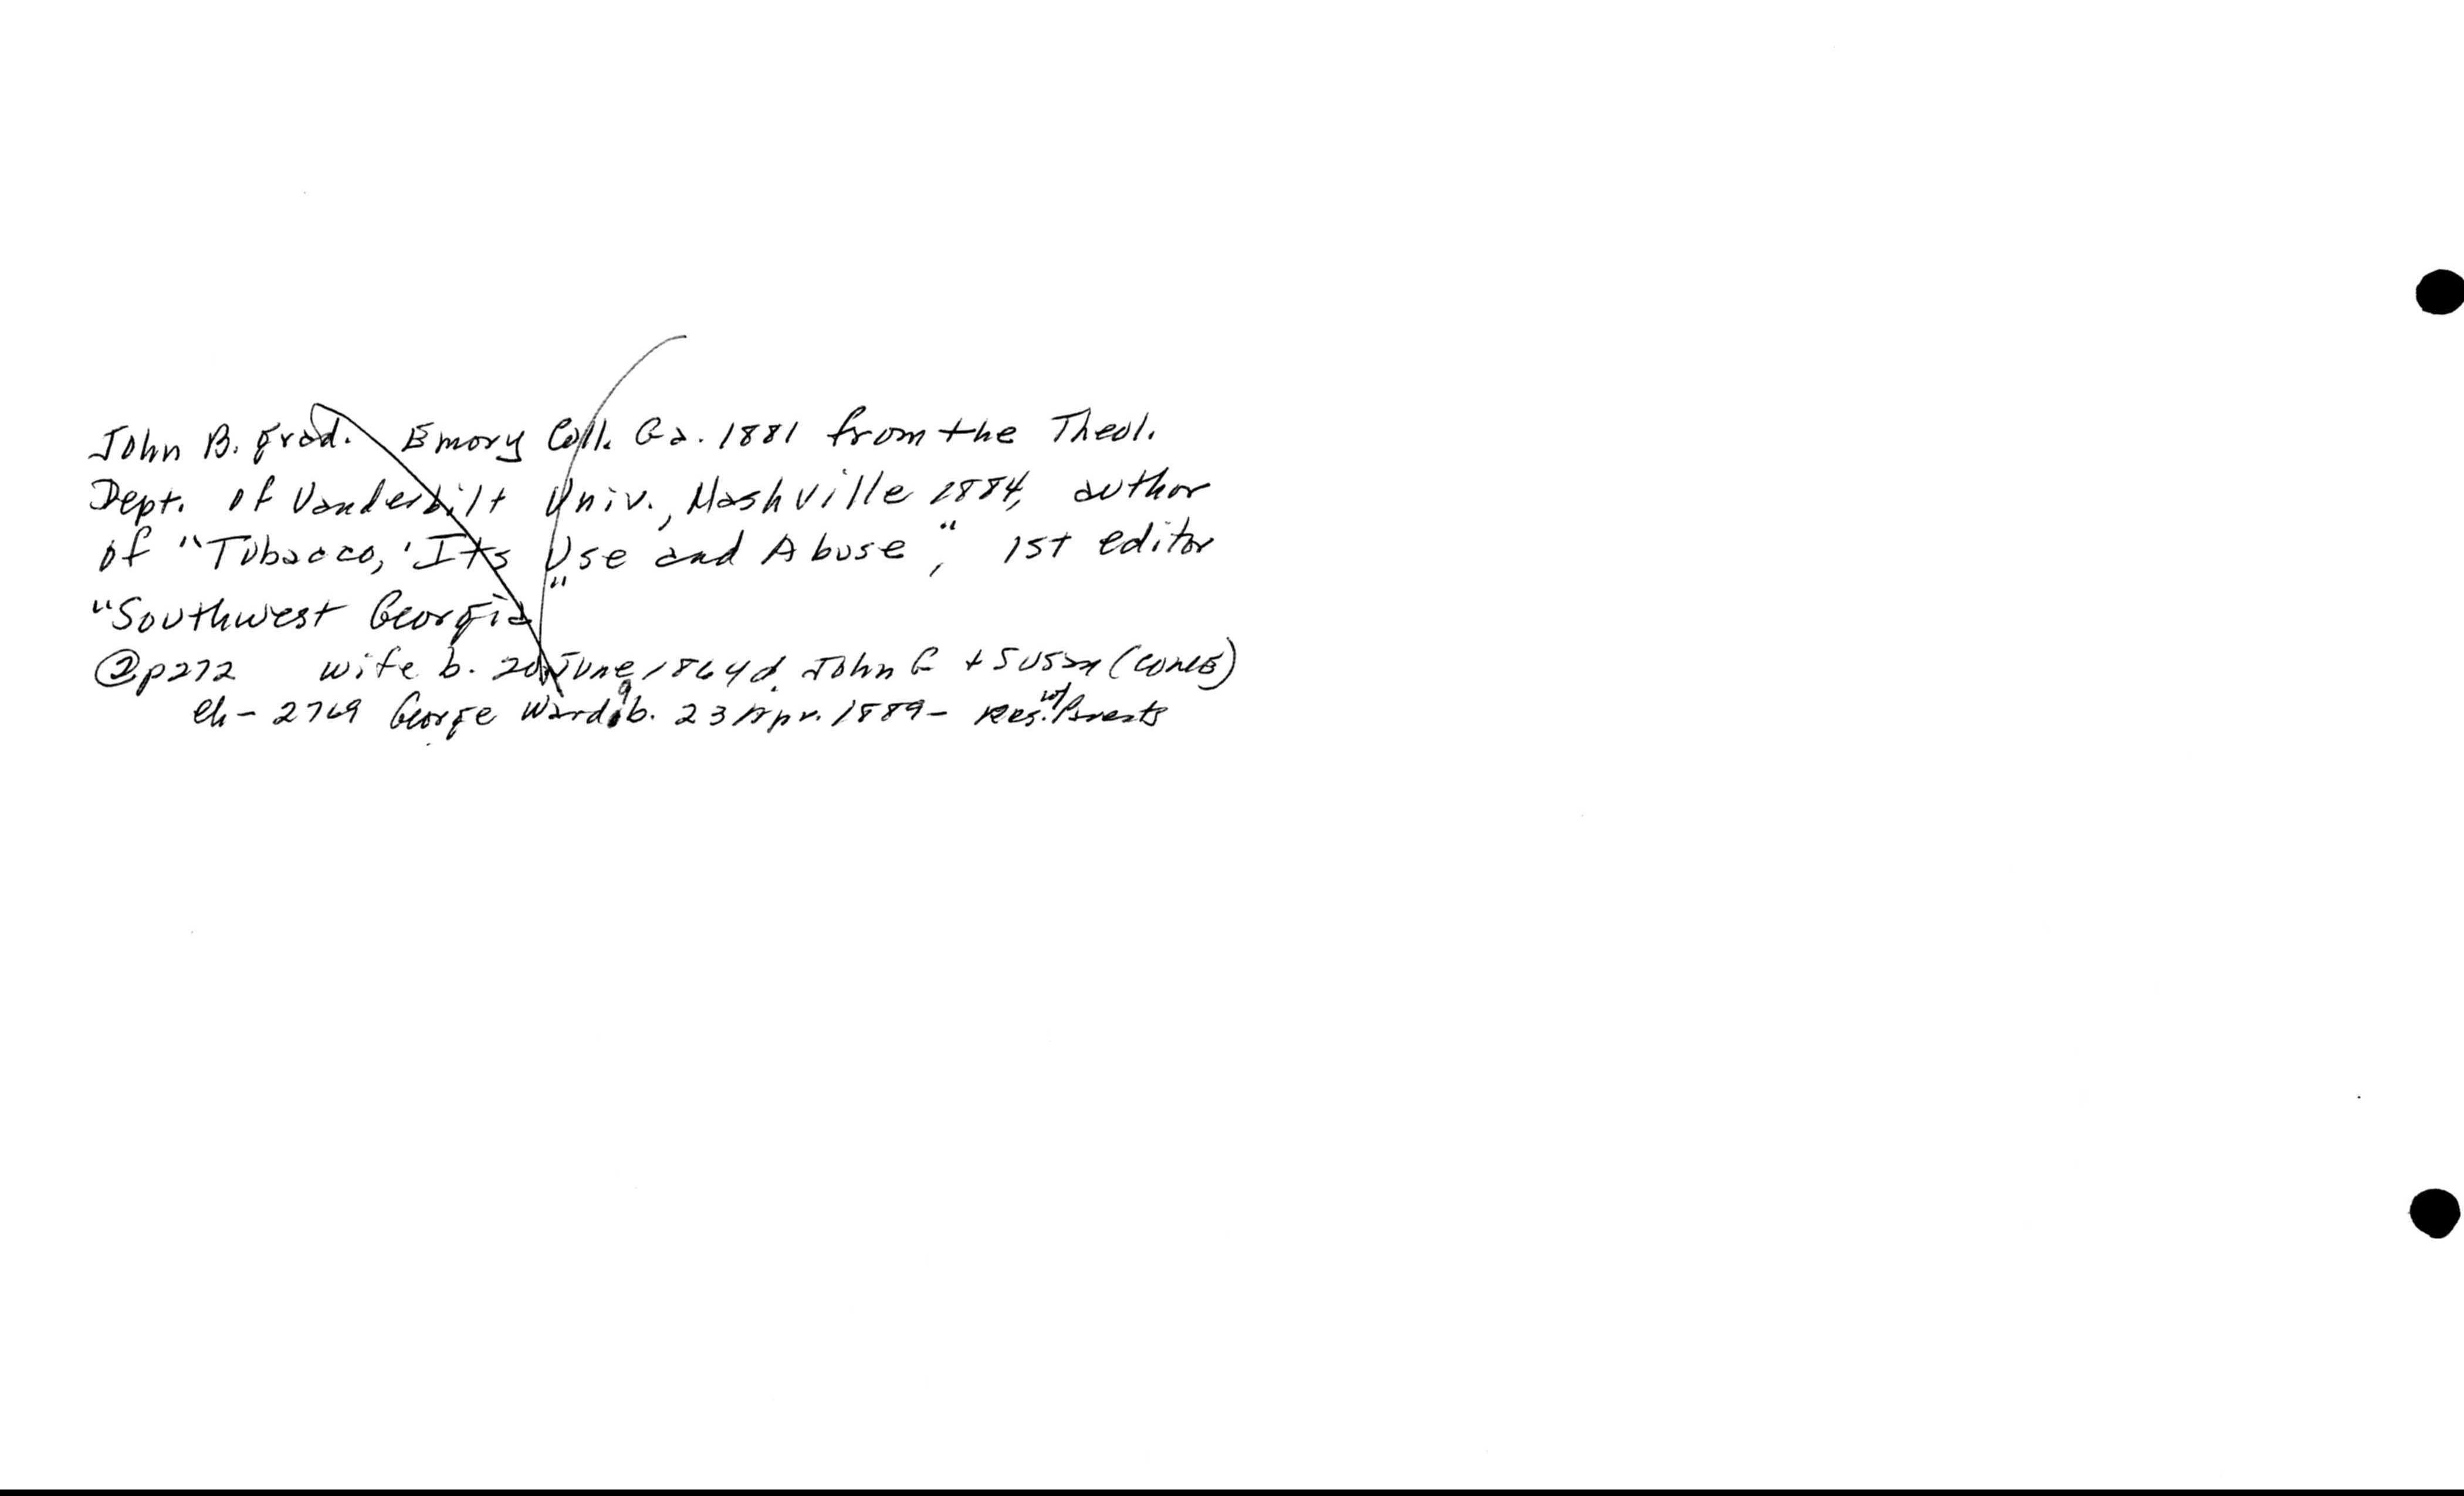 John B. grad. Emory Coll. Ga. 1881 from the Theol.
Dept. of Vanderbilt Univ., Nashville 1884, author
of "Tobacco, 'Its Use and Abuse", 1st editor
"Southwest Georgia"
@p272 wife b. 20 June 1864 d. John G + Susan (CONE)
ch- 2769 George Ward 9 b. 23 Apr. 1889- Res. w/ Parents